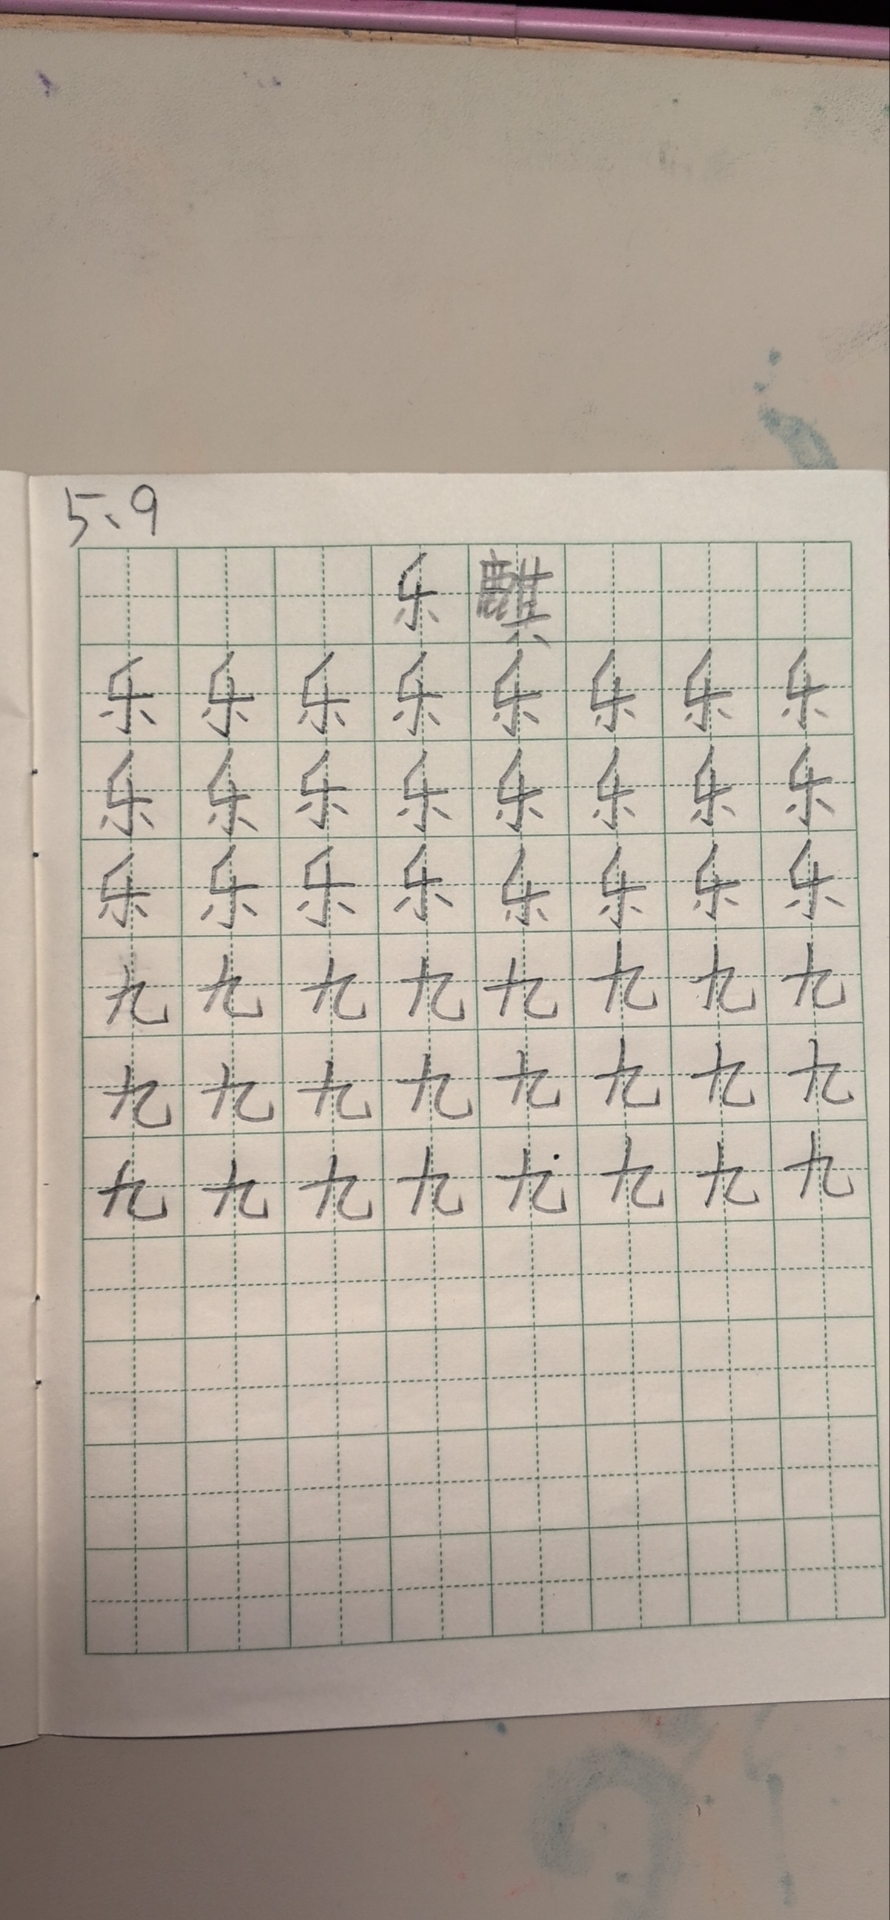 5、9
乐麒
乐乐乐乐乐乐乐乐
乐乐乐乐乐乐乐乐
乐乐乐乐乐乐乐乐
九九九九九九九九
九九九九九九九九
九九九九九九九九